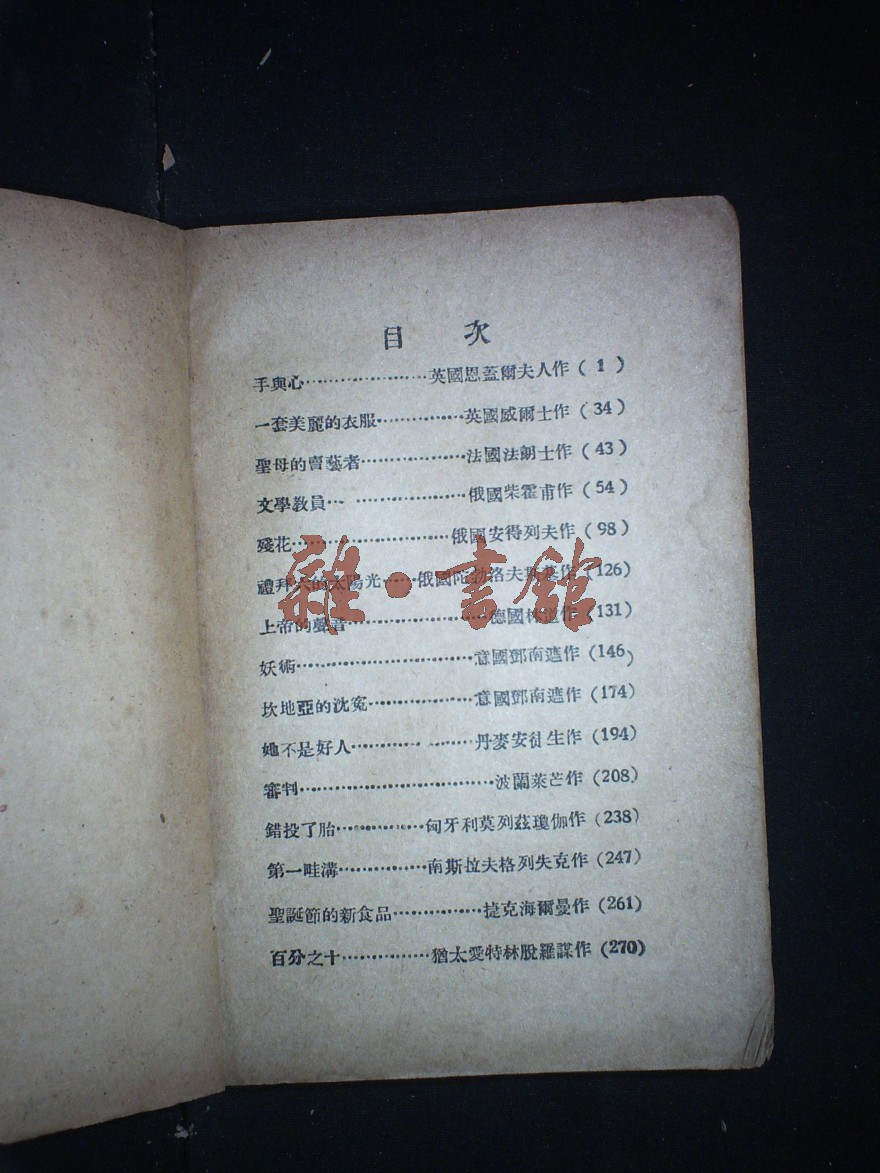 目 次
手與心…………………英國恩蓋爾夫人作 ( 1 )
一套美麗的衣服……………英國威爾士作 ( 34 )
聖母的賣藝者………………法國法朗士作 ( 43 )
文學教員… ………………俄國柴霍甫作 ( 54 )
殘花………………………俄國安得列夫作 ( 98 )
禮拜六的太陽光……俄國陀勃洛夫斯基作 (126)
上帝的聲音……………………德國林道作 (131)
妖術…………………………意國鄧南遮作 (146)
坎地亞的沈冤………………意國鄧南遮作 (174)
她不是好人…………………丹麥安徒生作 (194)
審判……………………………波蘭萊芒作 (208)
錯投了胎……………匈牙利莫列茲瓊伽作 (238)
第一畦溝……………南斯拉夫格列失克作 (247)
聖誕節的新食品……………捷克海爾曼作 (261)
百分之十……………猶太愛特林脫羅謀作 (270)
雜·書館